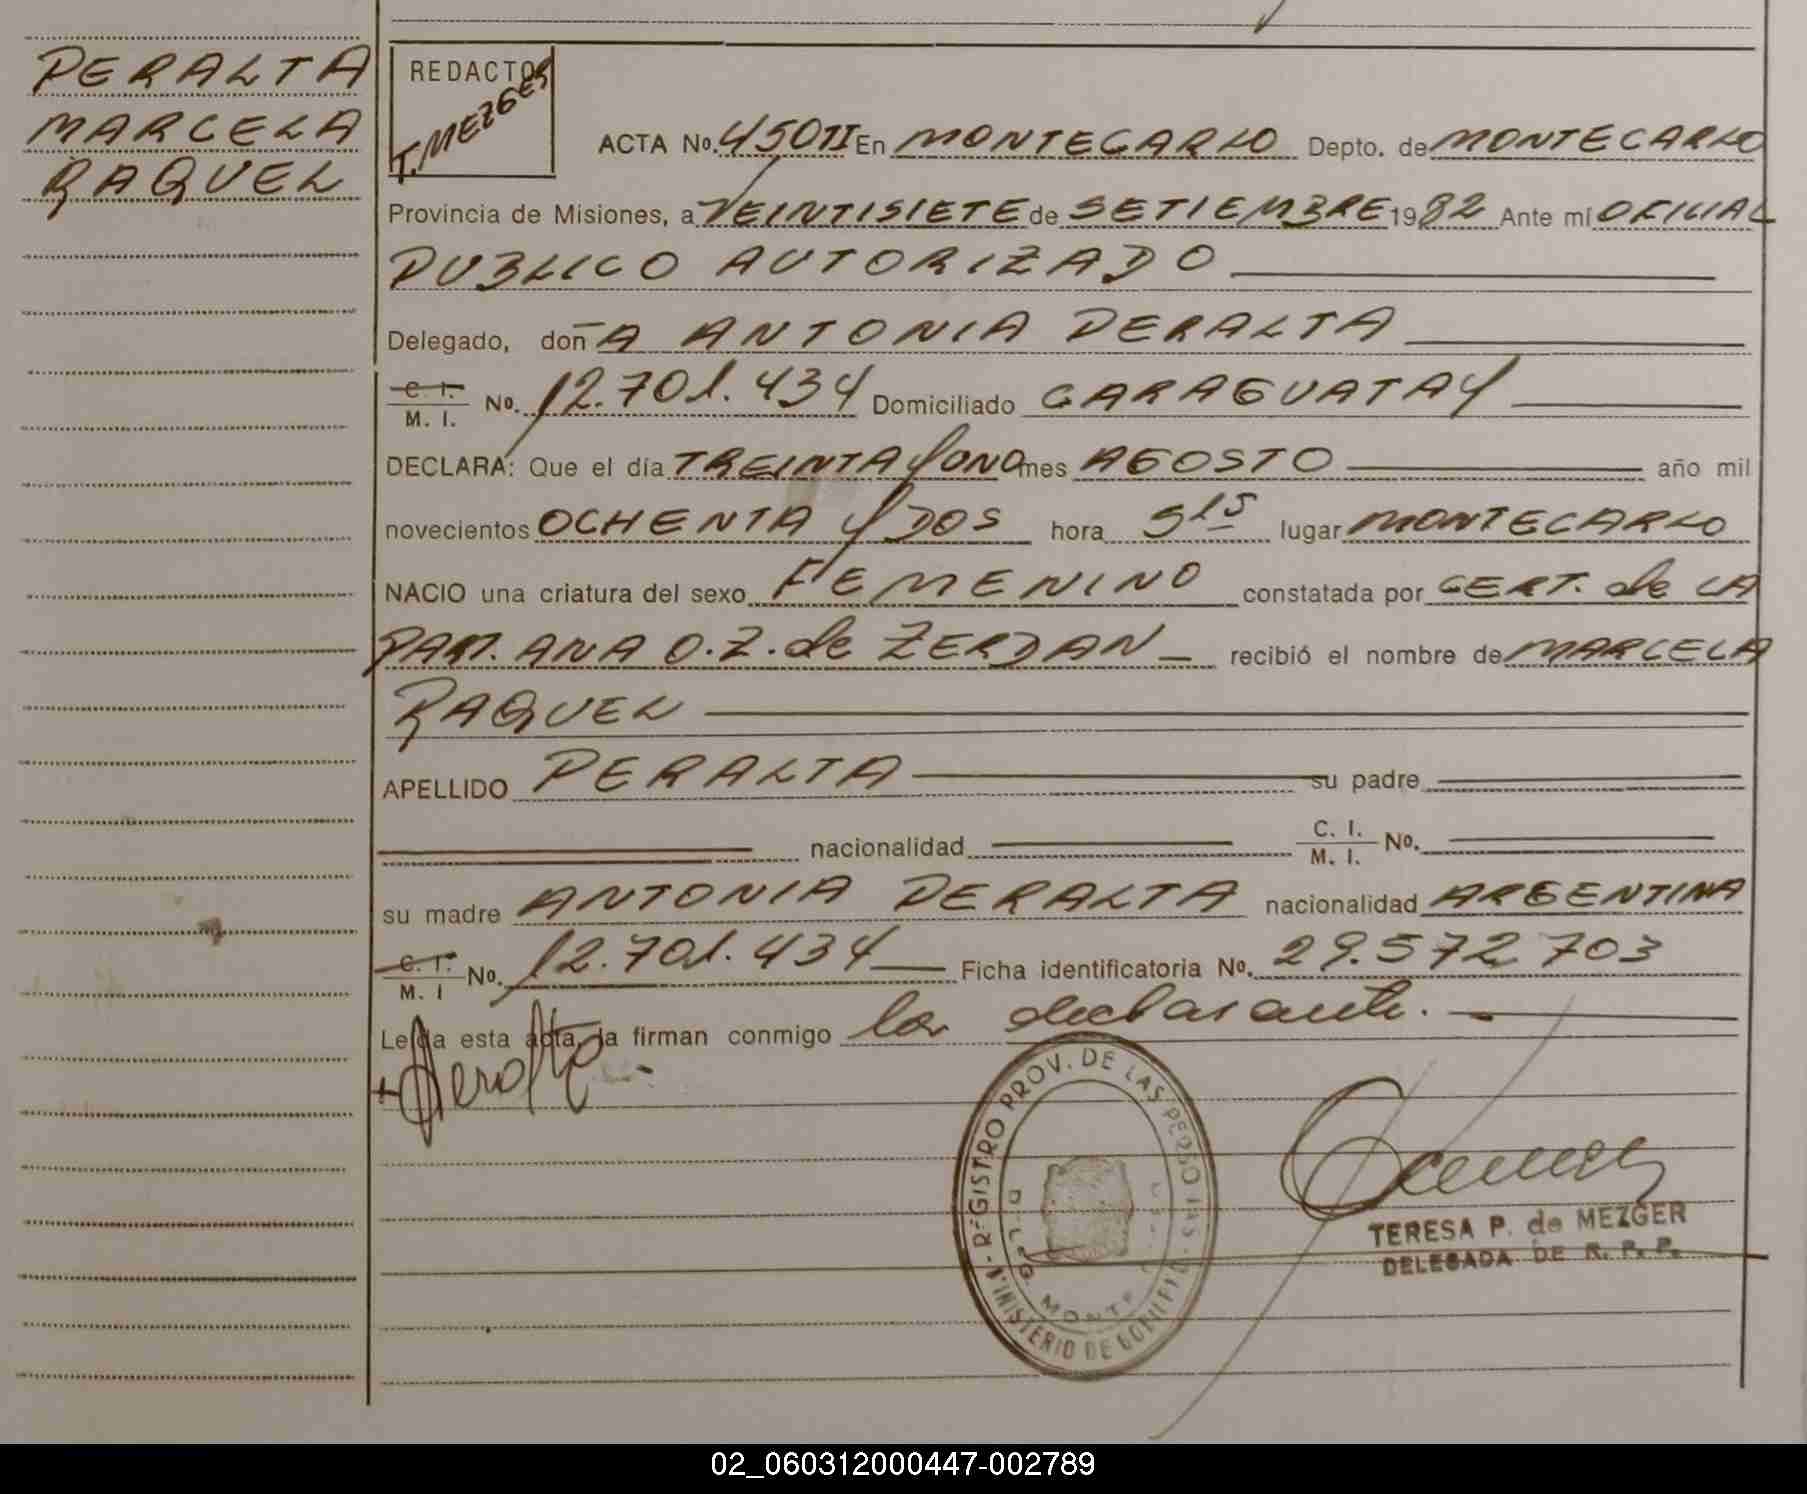 PERALTA
MARCELA
RAQUEL
REDACTOR
T. MEZGER
ACTA No. 450 II En MONTECARLO Depto. de MONTECARLO
Provincia de Misiones, a VEINTISIETE de SETIEMBRE 1982 Ante mí OFICIAL
PUBLICO AUTORIZADO
Delegado, doñA ANTONIA PERALTA
C. I.
M. I. No. 12.701.434 Domiciliado CARAGUATAY
DECLARA: Que el día TREINTA Y UNO mes AGOSTO año mil
novecientos OCHENTA Y DOS hora 5 15 lugar MONTECARLO
NACIO una criatura del sexo FEMENINO constatada por CERT. de LA
PART. ANA O. Z. de ZERDAN recibió el nombre de MARCELA
RAQUEL
APELLIDO PERALTA su padre
nacionalidad C. I.
M. I. No.
su madre ANTONIA PERALTA nacionalidad ARGENTINA
C. I.
M. I No. 12.701.434 Ficha identificatoria No. 29.572.703
Leída esta acta, la firman conmigo la declarante.
+ Peralta
REGISTRO PROV. DE LAS PERSONAS
MINISTERIO DE GOBIERNO
DELEG. MONTE
TERESA P. de MEZGER
DELEGADA DE R. P. P.
02_060312000447-002789